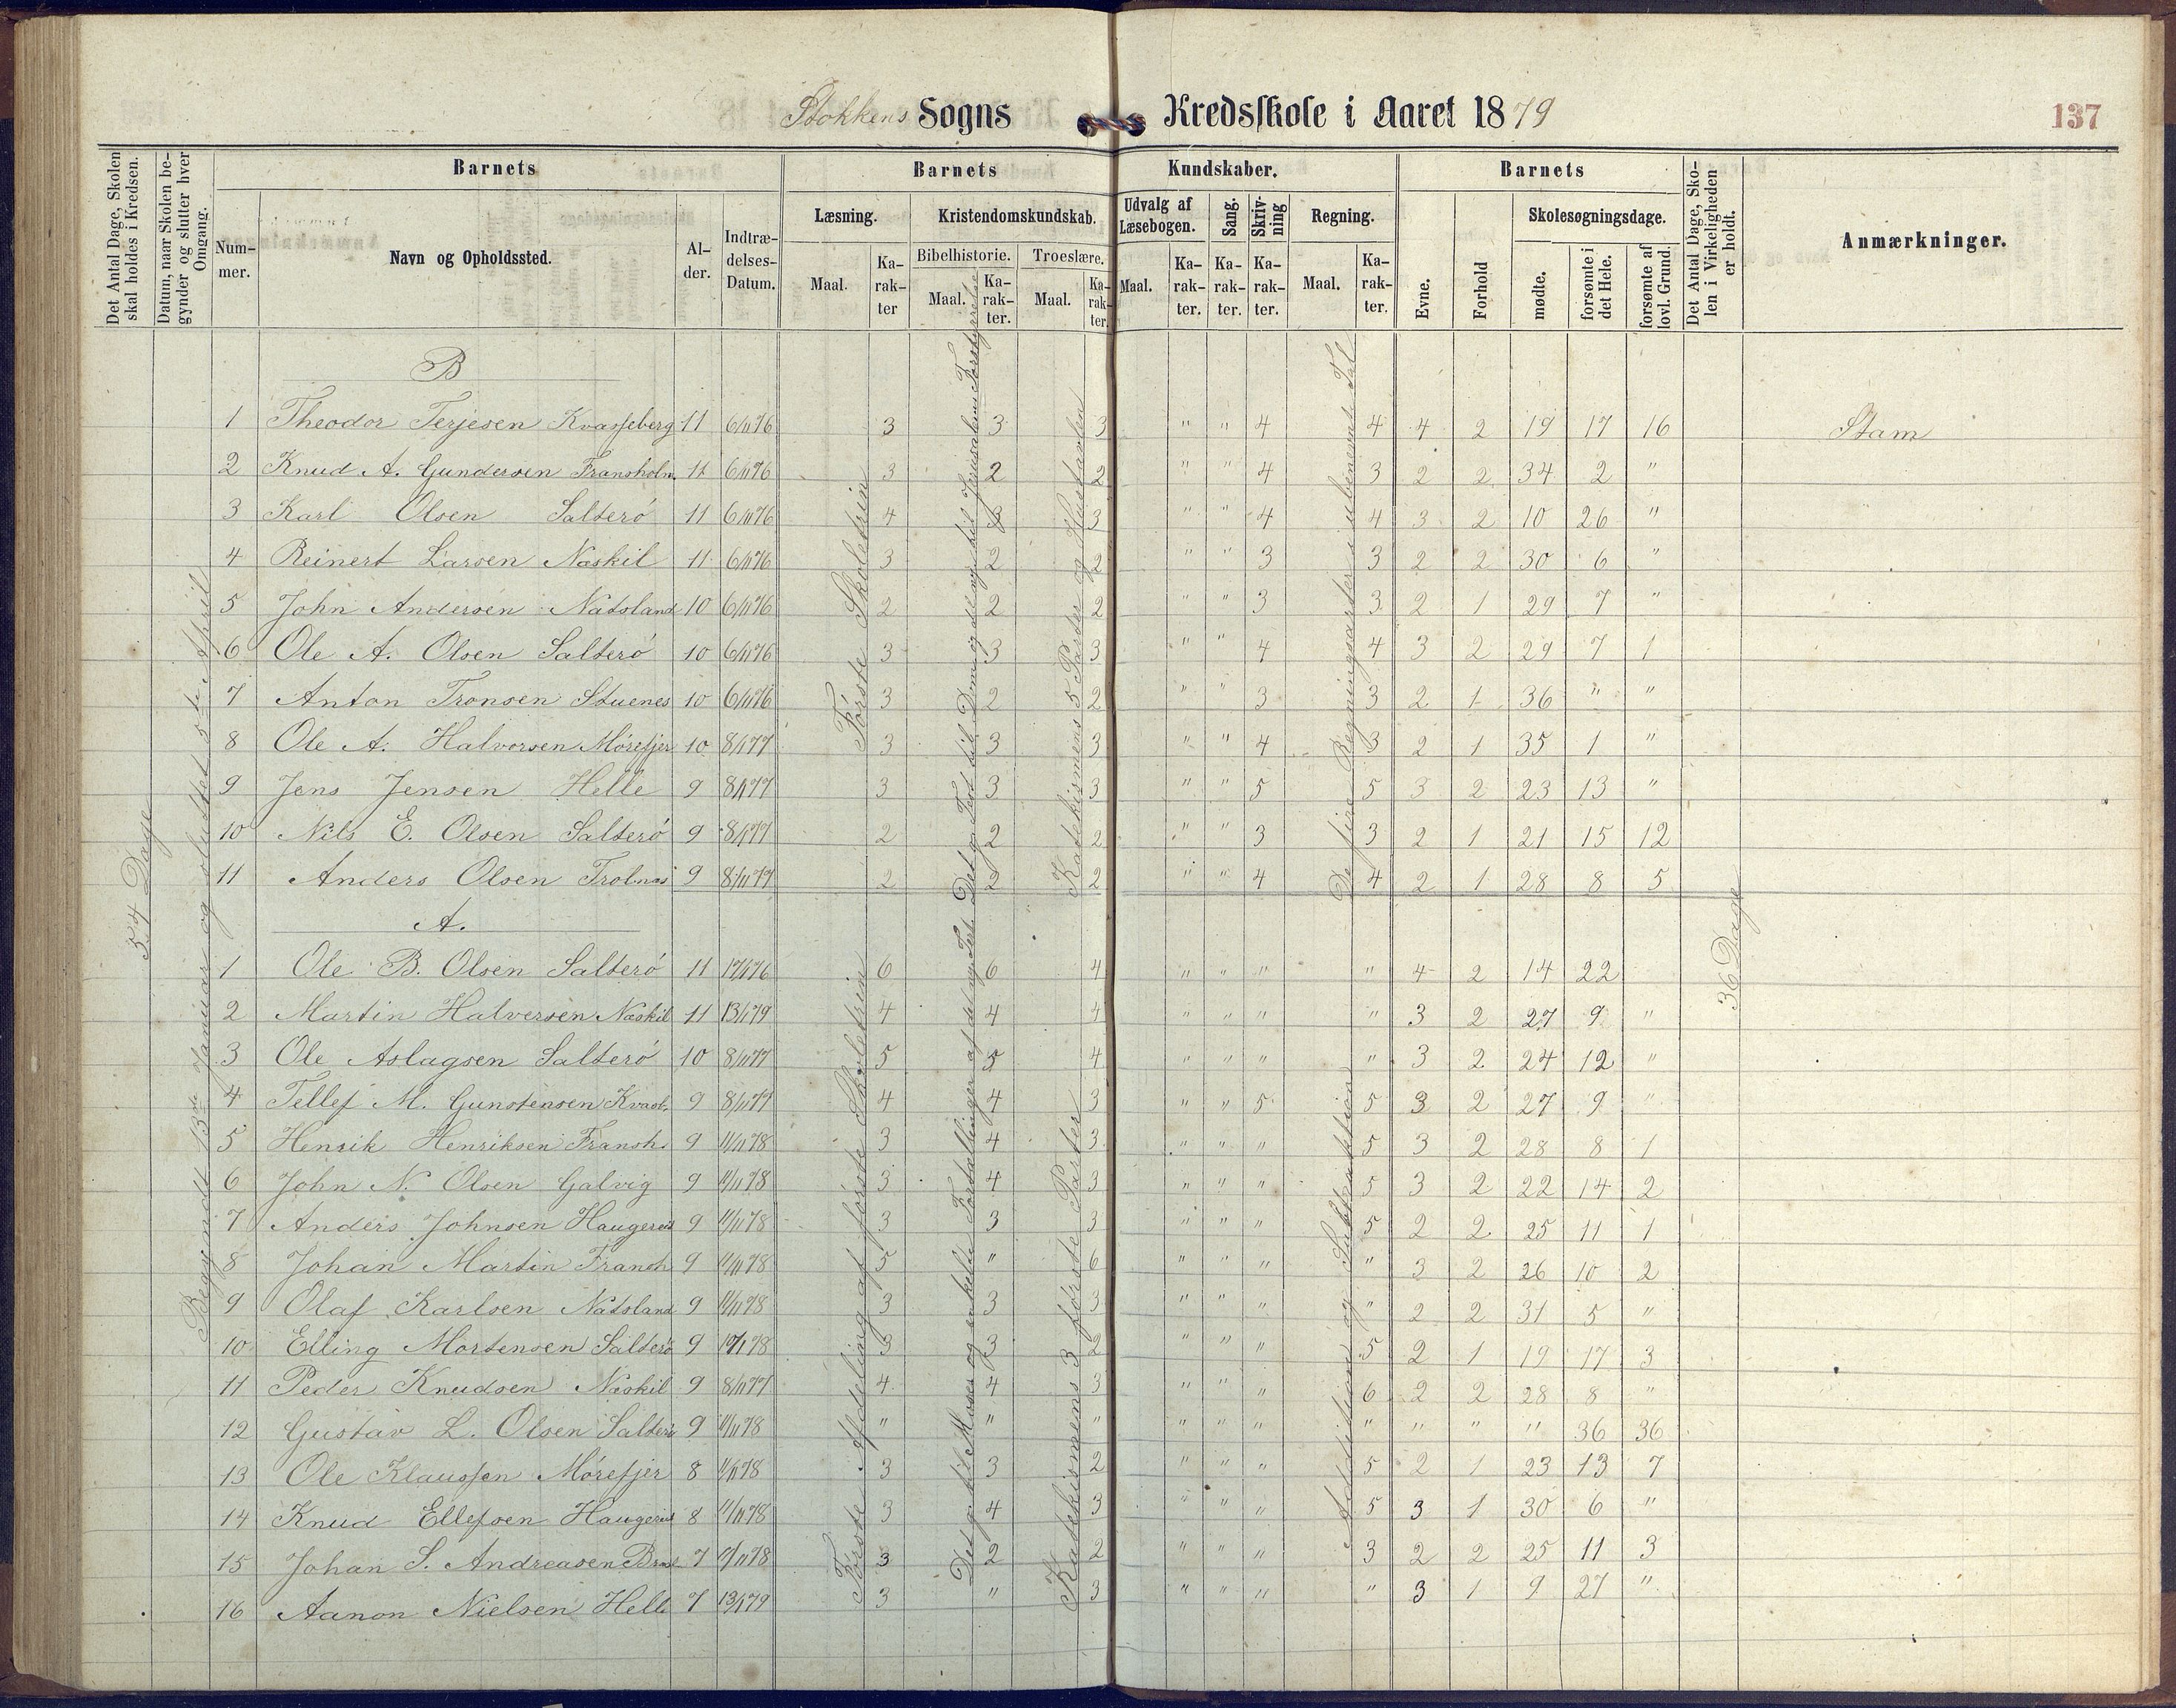 Stokkens Sogns Kredsskole i Aaret 1879 137
Det Antal Dage, Skolen skal holdes i Kredsen.
Datum, naar Skolen begynder og slutter hver Omgang.
Barnets Barnets Kundskaber. Barnets
Nummer. Navn og Opholdssted. Alder. Indtrædelses-Datum.
Læsning. Kristendomskundskab. Udvalg af Læsebogen. Sang. Skrivning Regning.
Bibelhistorie. Troeslære.
Maal. Karakter Maal. Karakter. Maal. Karakter. Maal. Karakter. Karakter. Karakter. Maal. Karakter.
Evne. Forhold Skolesøgningsdage. mødte. forsømte i det Hele. forsømte af lovl. Grund.
Det Antal Dage, Skolen i Virkeligheden er holdt.
Anmærkninger.
54 Dage
Begyndt 13de Januar og sluttet 5te April
B
Første Skoletrin
Katekismens 5 Parter og Hustavlen
De fire Regningsarter i ubenevnte Tal
1 Theodor Terjesen Kvasseberg 11 6/11 76 3 3 3 " " 4 4 4 2 19 17 16 Stam
2 Knud A. Gundersen Fransholm 11 6/11 76 3 2 2 " " 4 3 2 2 34 2 "
3 Karl Olsen Salterö 11 6/11 76 4 3 3 " " 4 4 3 2 10 26 "
4 Reinert Larsen Næskil 11 6/11 76 3 2 2 " " 3 3 2 2 30 6 "
5 John Andersen Natsland 10 6/11 76 2 2 2 " " 3 3 2 1 29 7 "
6 Ole A. Olsen Salterö 10 6/11 76 3 3 3 " " 4 4 3 2 29 7 1
7 Anton Tronsen Stuenes 10 6/11 76 3 2 2 " " 3 3 2 1 36 " "
8 Ole A. Halvorsen Mörefjer 10 8/1 77 3 3 3 " " 4 3 2 1 35 1 "
9 Jens Jensen Helle 9 8/1 77 3 3 3 " " 5 5 3 2 23 13 "
10 Nils E. Olsen Salterö 9 8/1 77 2 2 2 " " 3 3 2 1 21 15 12
11 Anders Olsen Trolnæs 9 8/11 77 2 2 2 " " 4 4 2 1 28 8 5
36 Dage
A.
Første Afdeling af første Skoletrin
Det gl. til Moses og enkelte Fortællinger af det nye Test.
Katekismens 3 første Parter
Addition og Subtraktion
1 Ole B. Olsen Salterö 11 17/1 76 6 6 4 " " " " 4 2 14 22
2 Martin Halvorsen Næskil 11 13/1 79 4 4 4 " " " " 3 2 27 9 "
3 Ole Aslagsen Salterö 10 8/11 77 5 5 4 " " " " 3 2 24 12 "
4 Tellef M. Gunstensen Kvasb. 9 8/11 77 4 4 3 " " 5 5 3 2 27 9 "
5 Henrik Henriksen Fransh. 9 11/11 78 3 4 3 " " " 5 3 2 28 8 1
6 John N. Olsen Galvig 9 11/11 78 3 4 3 " " " 5 3 2 22 14 2
7 Anders Johnsen Haugereid 9 11/11 78 3 3 3 " " " 5 2 2 25 11 1
8 Johan Martin Fransh 9 11/11 78 5 " 6 " " " " 3 2 26 10 2
9 Olaf Karlsen Natsland 9 11/11 78 3 3 3 " " " " 2 2 31 5 "
10 Elling Mortensen Salterö 9 78 3 3 2 " " " 5 2 1 19 17 3
11 Peder Knudsen Næskil 9 8/11 77 4 4 3 " " " 6 2 2 28 8 "
12 Gustav L. Olsen Salterö 9 11/11 78 " " " " " " " " " " 36 36
13 Ole Klaussen Mörefjer 8 11/11 78 3 3 2 " " " 5 2 1 23 13 7
14 Knud Ellefsen Haugereid 8 11/11 78 3 4 3 " " " 5 3 1 30 6 "
15 Johan S. Andreasen 7 11/11 78 3 2 2 " " " 3 2 2 25 11 3
16 Aanon Nielsen Helle 7 13/1 79 3 " 3 " " " " 3 1 9 27 "